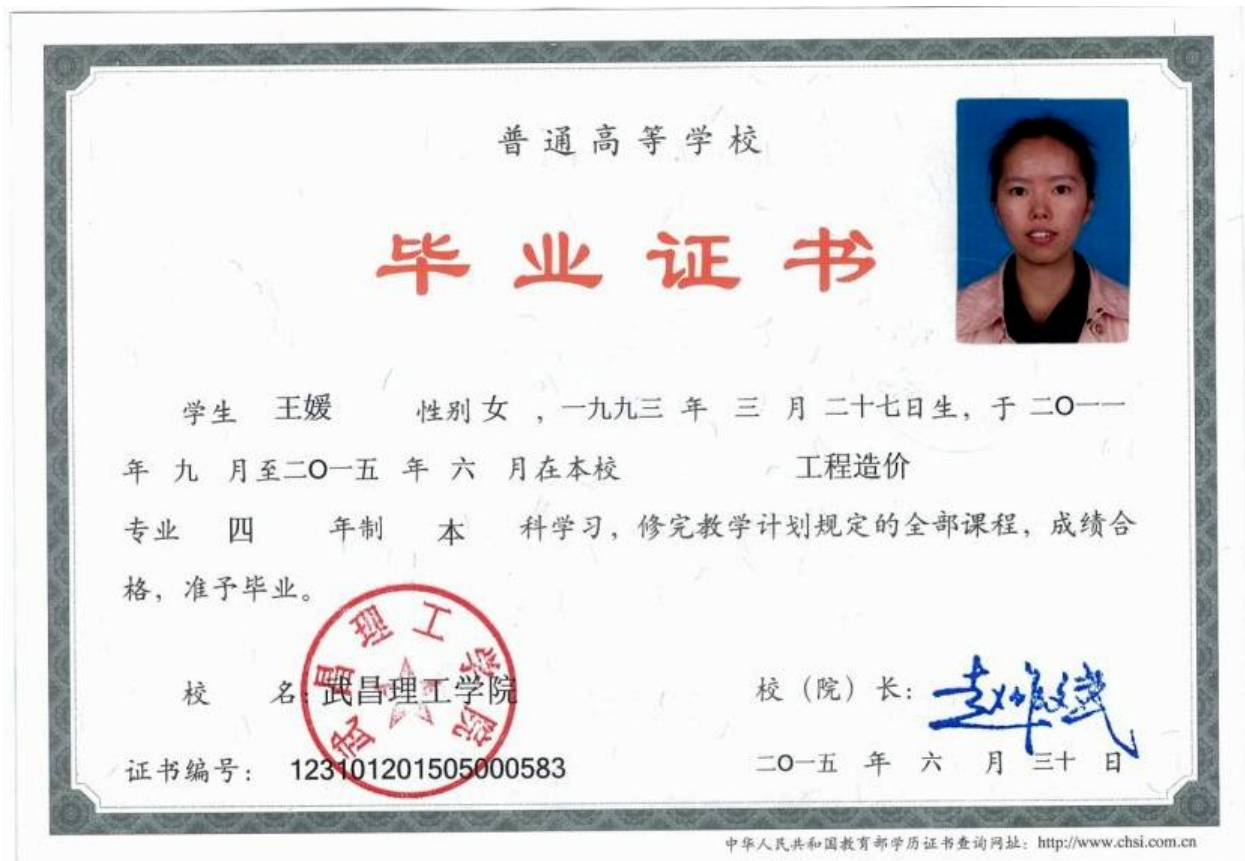 普通高等学校
毕业证书
学生 王媛 性别 女 ，一九九三 年 三 月 二十七日生，于 二O一一
年 九 月至二O一五 年 六 月在本校 工程造价
专业 四 年制 本 科学习，修完教学计划规定的全部课程，成绩合
格，准予毕业。
武昌理工学院
校 名：武昌理工学院 校（院）长：
证书编号： 123101201505000583 二O一五 年 六 月 三十 日
中华人民共和国教育部学历证书查询网址：http://www.chsi.com.cn